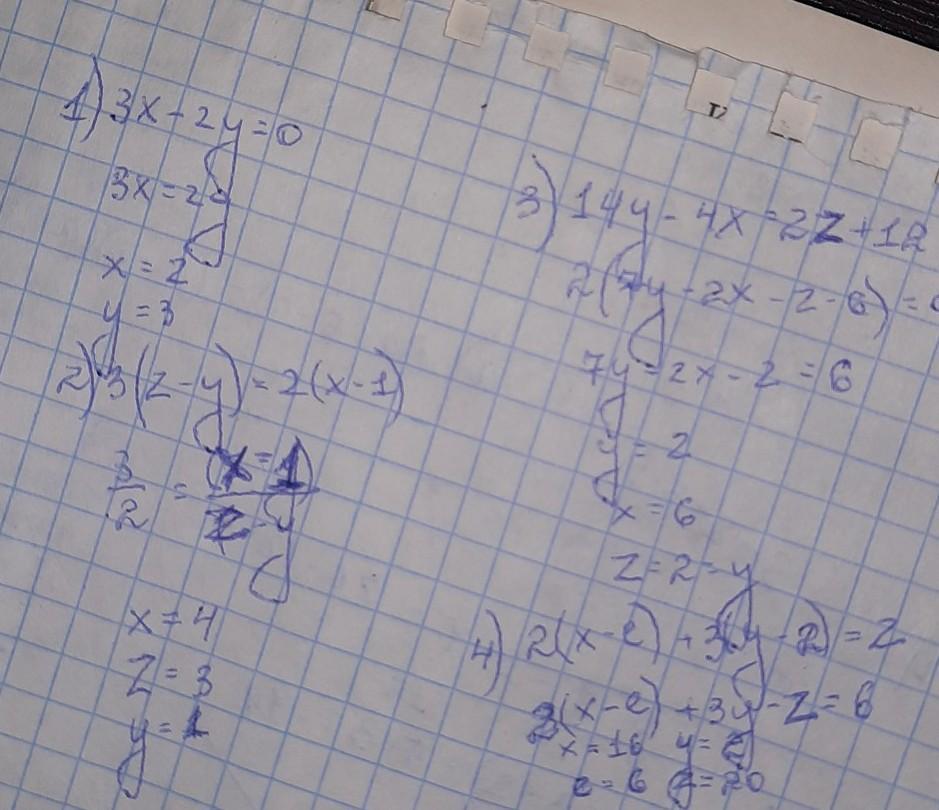 1) 3x - 2y = 0
3x = 2y
x = 2
y = 3
2) 3(z - y) = 2(x - 1)
3/2 = (x - 1)/(z - y)
x = 4
z = 3
y = 1
3) 14y - 4x = 2z + 12
2(7y - 2x - z - 6) =
7y - 2x - z = 6
y = 2
x = 6
z = 2 - y
4) 2(x - e) + 3(y - 2) = z
2(x - e) + 3y - z = 6
x = 16 y = 2
e = 6 z = 20